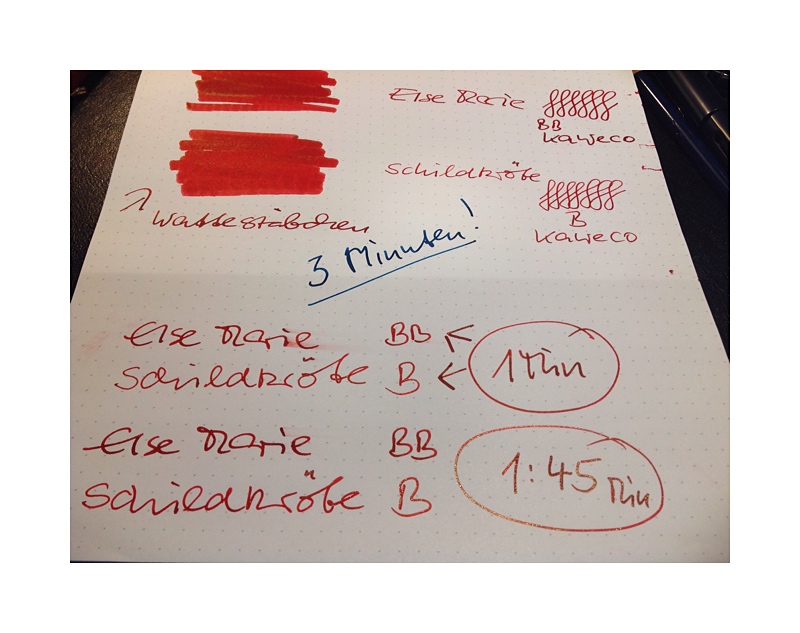 Else Marie
BB
Kaweco
Schildkröte
B
Kaweco
Wattestäbchen
3 Minuten!
Else Marie BB
Schildkröte B
1 Min
Else Marie BB
Schildkröte B
1:45 Min